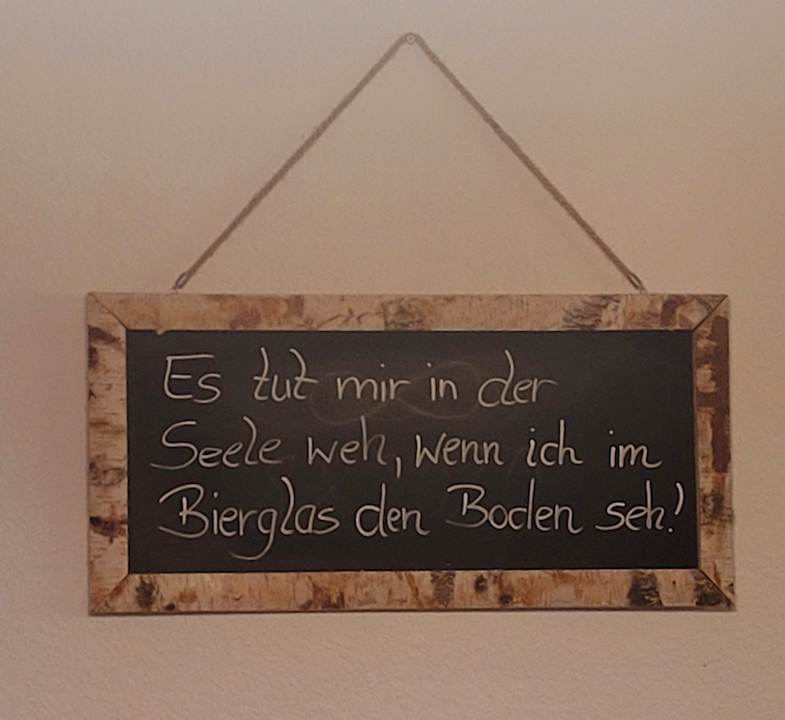 Es tut mir in der
Seele weh, wenn ich im
Bierglas den Boden seh!